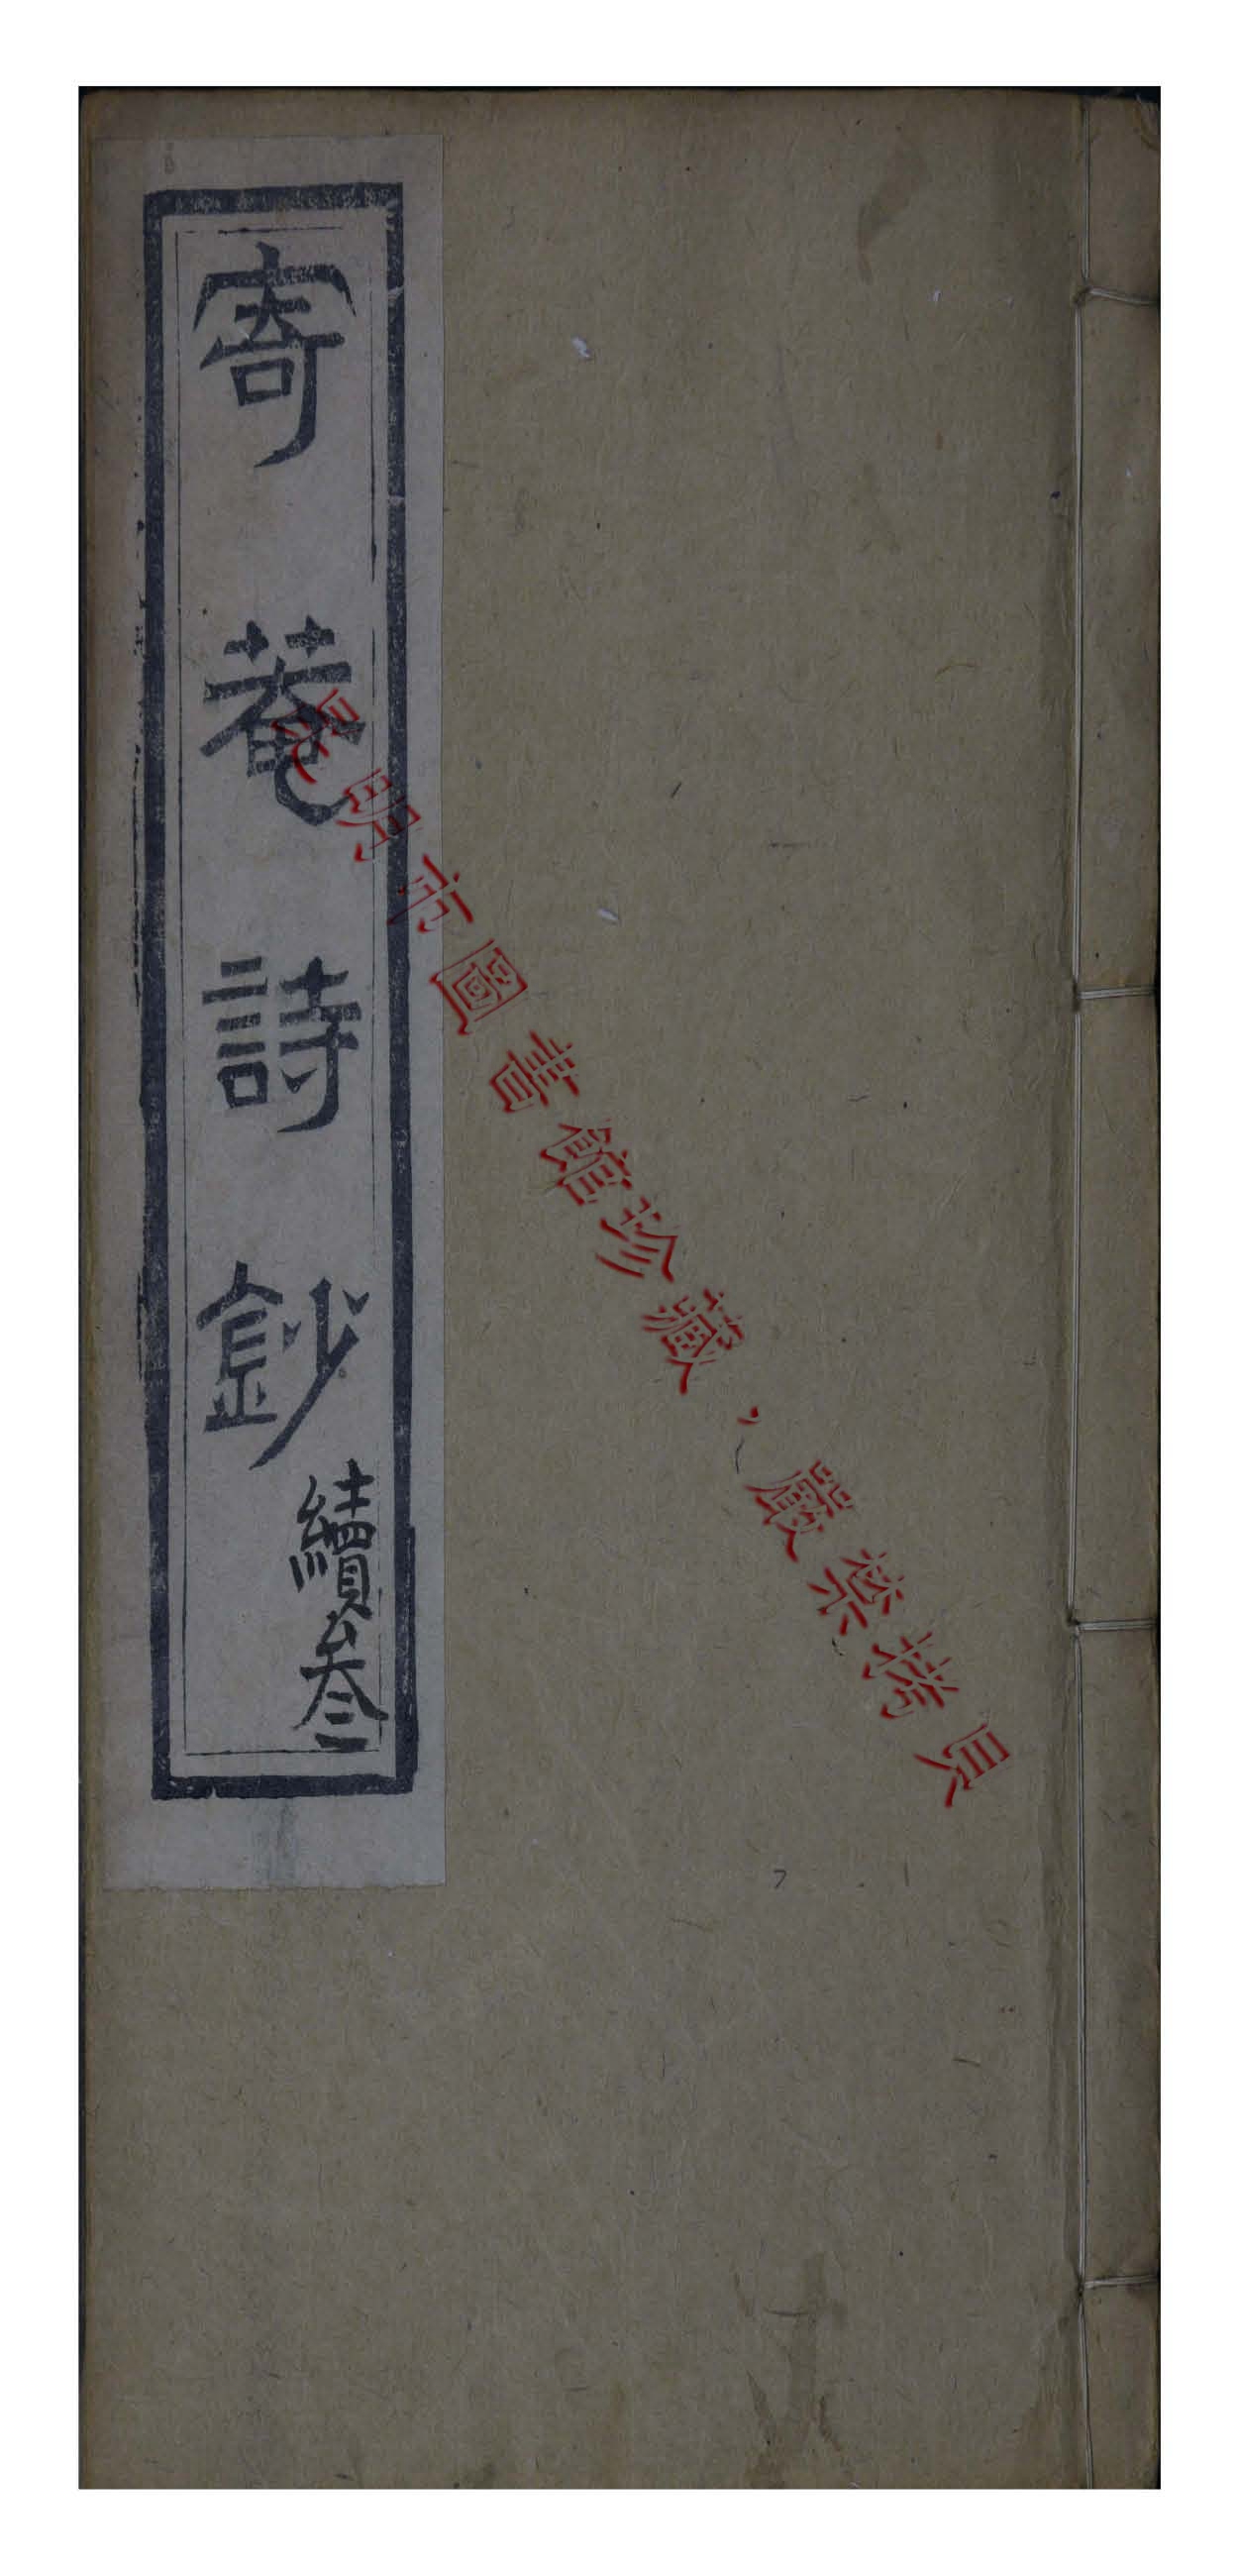 寄菴詩鈔
續叁
昆明市圖書館珍藏，嚴禁拷貝